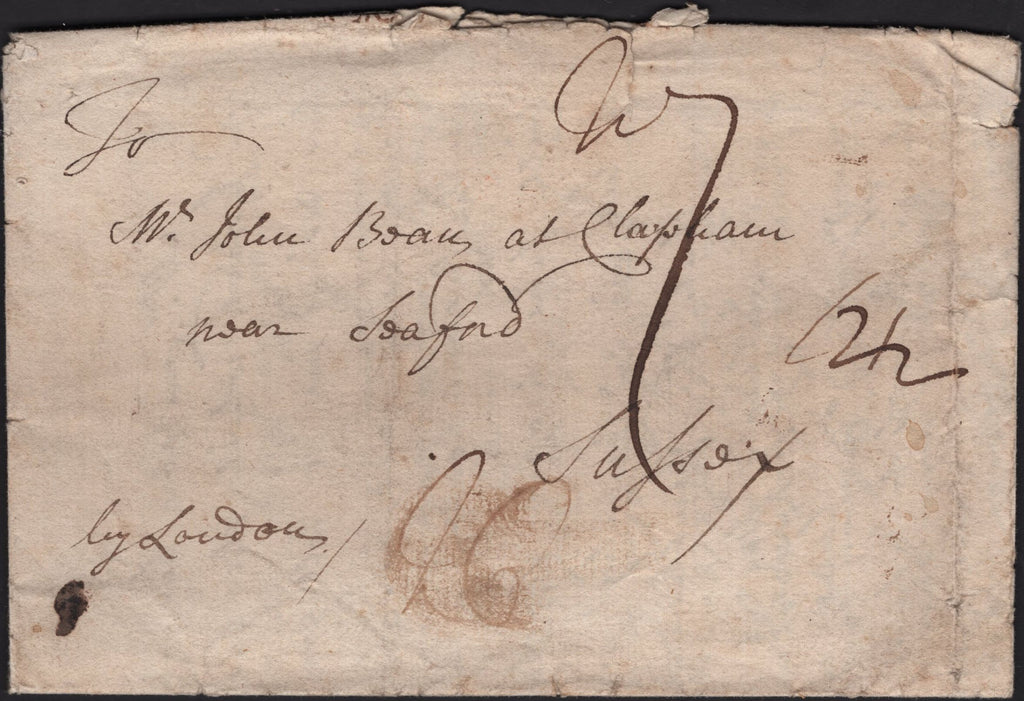 To
Mr. John Bean at Clapham
near Seaford
Sussex
by London